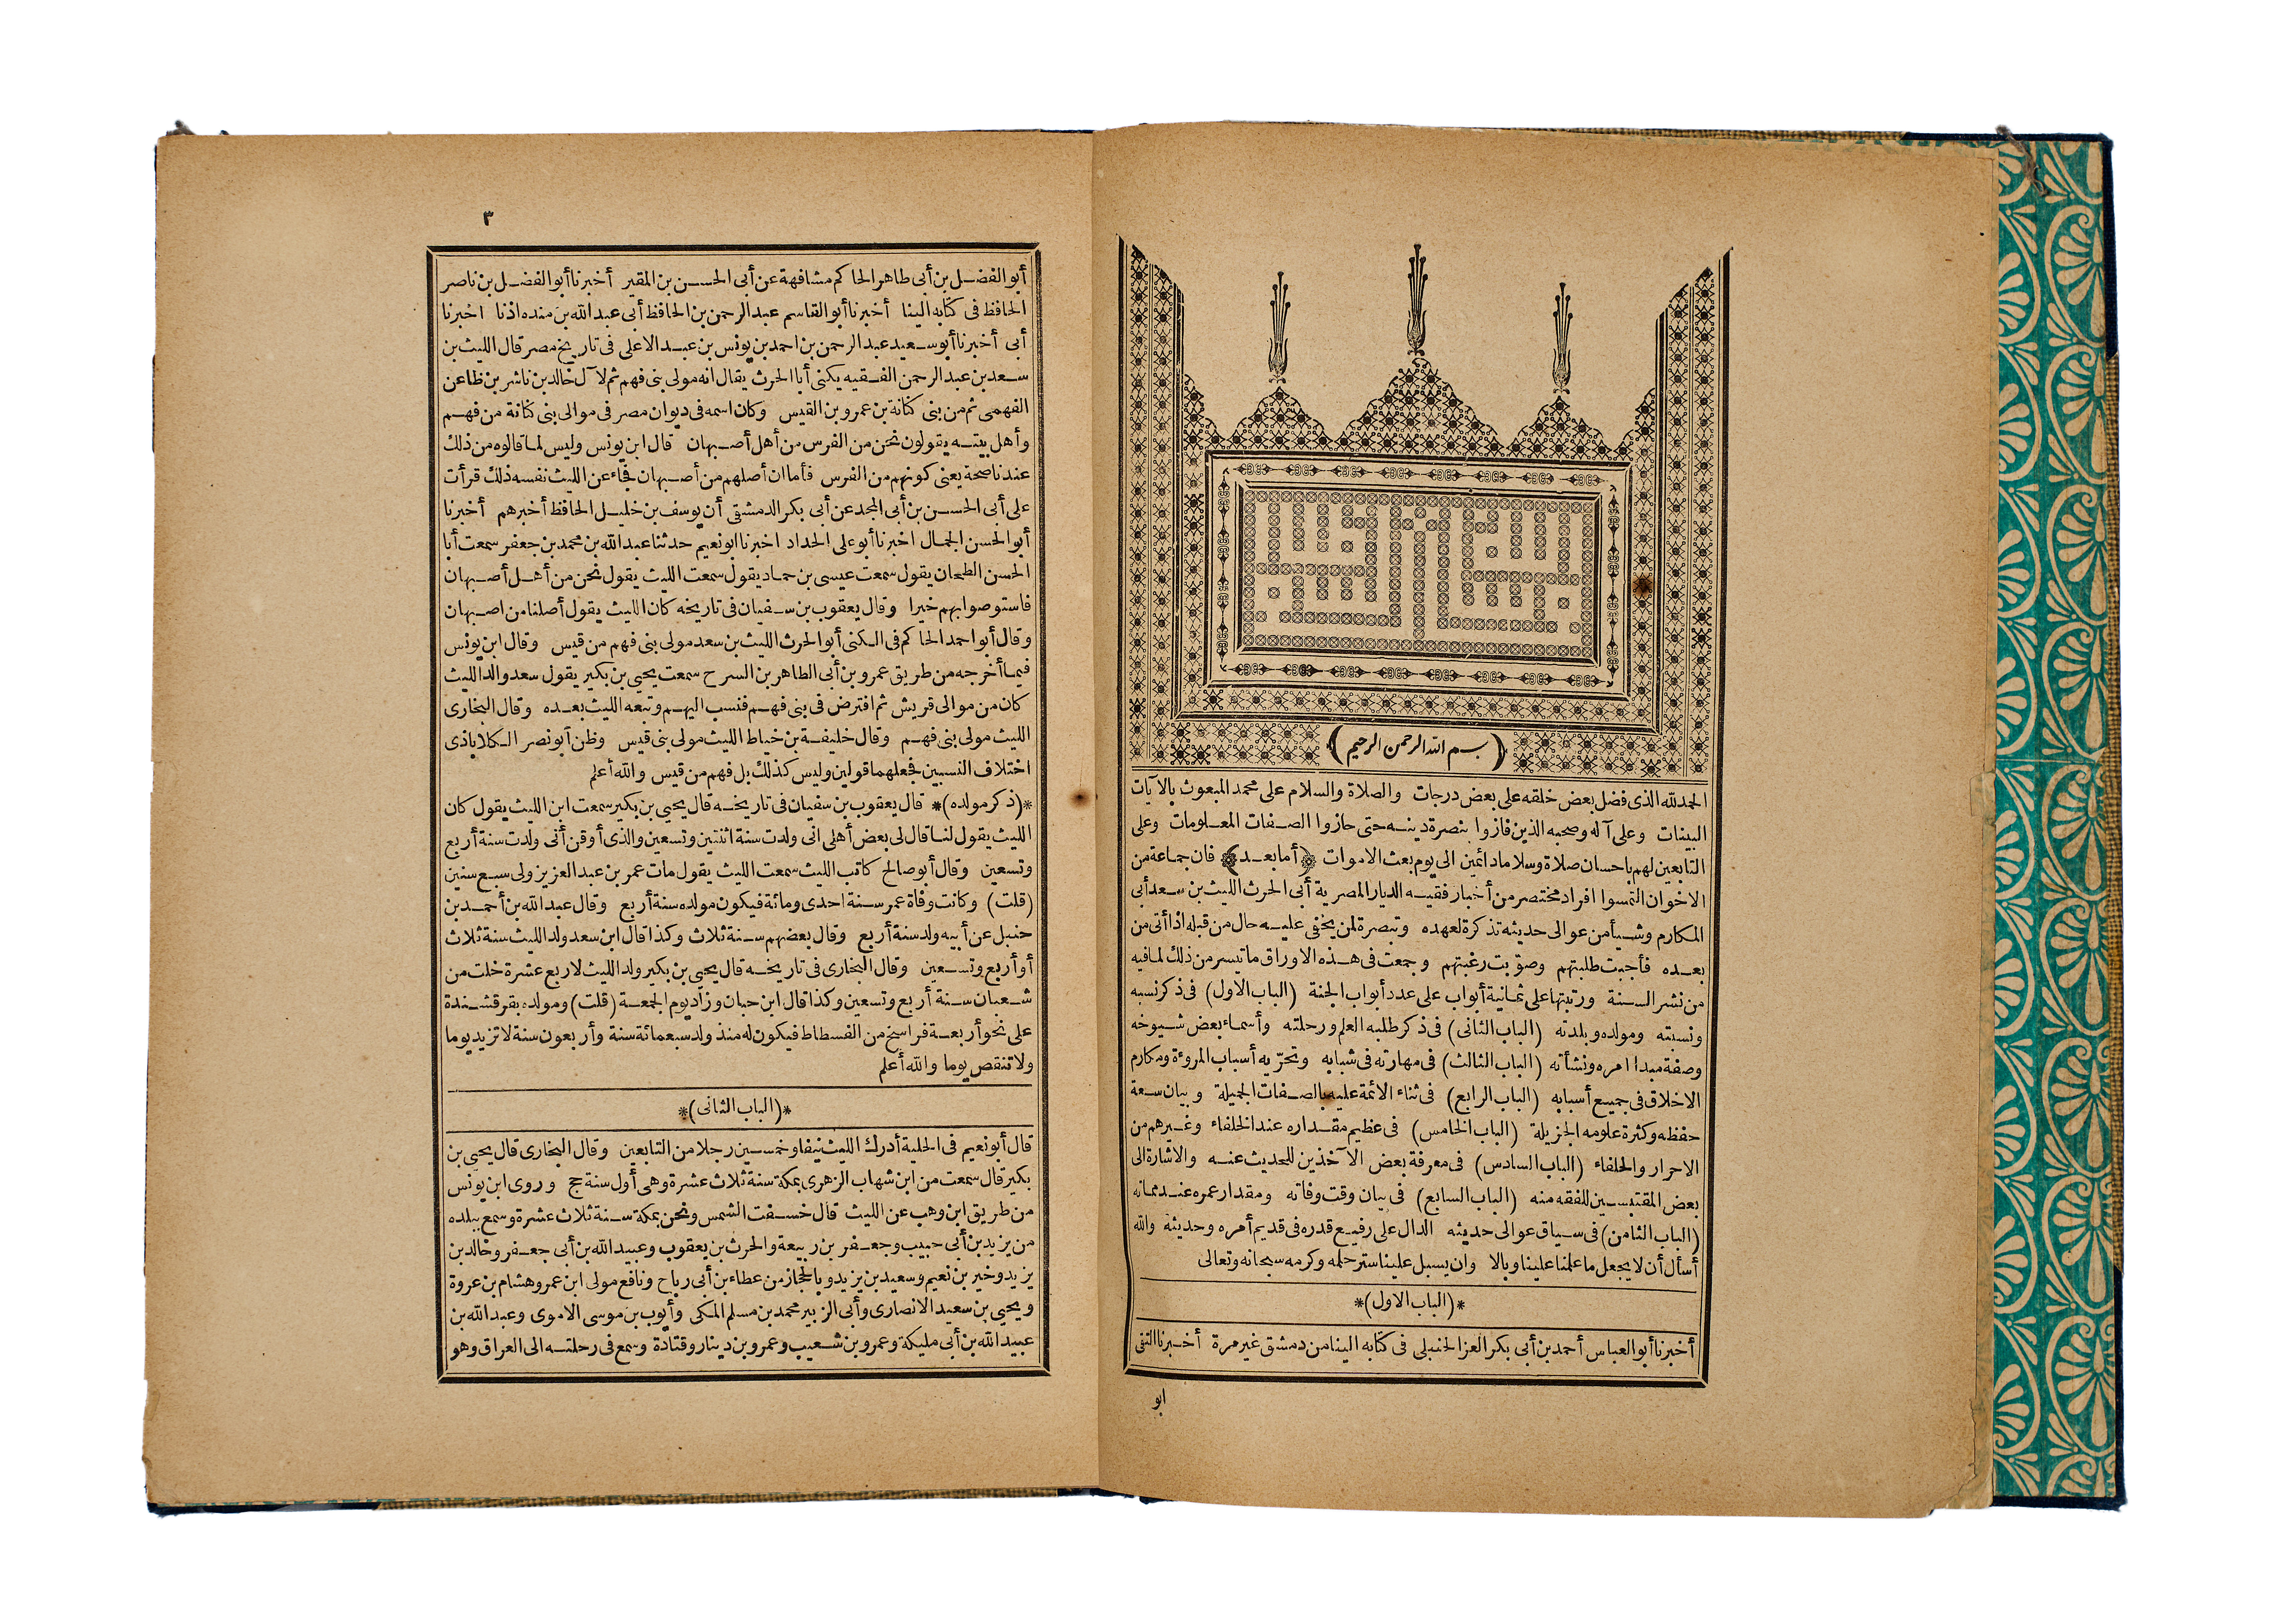 (بسم الله الرحمن الرحيم)
الحمدلله الذى فضل بعض خلقه على بعض درجات والصلاة والسلام على محمد المبعوث بالآيات
البينات وعلى آله وصحبه الذين فازوا بنصرة دينه حتى حازوا الصفات المعلومات وعلى
التابعين لهم باحسان صلاة وسلاما دائمين الى يوم بعث الاموات (أما بعد) فان جماعة من
الاخوان التمسوا افراد مختصر من أخبار فقيه الديار المصرية أبى الحرث الليث بن سعد أبى
المكارم وشيأ من عوالى حديثه تذكرة لعهده وتبصرة لمن يخفى عليه حال من قبله اذا أتى من
بعده فأجبت طلبتهم وصوّبت رغبتهم وجمعت فى هذه الاوراق ما تيسر من ذلك لما فيه
من نشر السنة ورتبتها على ثمانية أبواب على عدد أبواب الجنة (الباب الاول) فى ذكر نسبه
ونسبته ومولده وبلدته (الباب الثانى) فى ذكر طلبه العلم ورحلته وأسماء بعض شيوخه
وصفة مبدا امره ونشأته (الباب الثالث) فى مهارته فى شبابه وتحرّيه أسباب المروءة ومكارم
الاخلاق فى جميع أسبابه (الباب الرابع) فى ثناء الائمة عليه بالصفات الجميلة وبيان سعة
حفظه وكثرة علومه الجزيلة (الباب الخامس) فى عظيم مقداره عند الخلفاء وغيرهم من
الاحرار والحلفاء (الباب السادس) فى معرفة بعض الآخذين للحديث عنه والاشارة الى
بعض المقتبسين للفقه منه (الباب السابع) فى بيان وقت وفاته ومقدار عمره عند مماته
(الباب الثامن) فى سياق عوالى حديثه الدال على رفيع قدره فى قديم أمره وحديثه والله
أسأل أن لا يجعل ما علمنا علينا وبالا وان يسبل علينا ستر حلمه وكرمه سبحانه وتعالى
*(الباب الاول)*
أخبرنا أبو العباس أحمد بن أبى بكر العز الحنبلى فى كتابه الينا من دمشق غير مرة أخبرنا التقى
ابو
٣
أبو الفضل بن أبى طاهر الحاكم مشافهة عن أبى الحسن بن المقير أخبرنا أبو الفضل بن ناصر
الحافظ فى كتابه الينا أخبرنا أبو القاسم عبد الرحمن بن الحافظ أبى عبد الله بن منده اذنا اخبرنا
أبى أخبرنا أبو سعيد عبد الرحمن بن احمد بن يونس بن عبد الاعلى فى تاريخ مصر قال الليث بن
سعد بن عبد الرحمن الفقيه يكنى أبا الحرث يقال انه مولى بنى فهم ثم لآل خالد بن ناشر بن ظاعن
الفهمى ثم من بنى كنانة بن عمرو بن القيس وكان اسمه فى ديوان مصر فى موالى بنى كنانة من فهم
وأهل بيته يقولون نحن من الفرس من أهل أصبهان قال ابن يونس وليس لما قالوه من ذلك
عندنا صحة يعنى كونهم من الفرس فأما ان أصلهم من أصبهان فجاء عن الليث نفسه ذلك قرأت
على أبى الحسن بن أبى المجد عن أبى بكر الدمشقى أن يوسف بن خليل الحافظ أخبرهم أخبرنا
أبو الحسن الجمال اخبرنا أبو على الحداد اخبرنا ابو نعيم حدثنا عبد الله بن محمد بن جعفر سمعت أبا
الحسن الطحان يقول سمعت عيسى بن حماد يقول سمعت الليث يقول نحن من أهل أصبهان
فاستوصوا بهم خيرا وقال يعقوب بن سفيان فى تاريخه كان الليث يقول أصلنا من اصبهان
وقال أبو احمد الحاكم فى الكنى أبو الحرث الليث بن سعد مولى بنى فهم من قيس وقال ابن يونس
فيما أخرجه من طريق عمرو بن أبى الطاهر بن السرح سمعت يحيى بن بكير يقول سعد والد الليث
كان من موالى قريش ثم افترض فى بنى فهم فنسب اليهم وتبعه الليث بعده وقال البخارى
الليث مولى بنى فهم وقال خليفة بن خياط الليث مولى بنى قيس وظن أبو نصر الكلاباذى
اختلاف النسبين فجعلهما قولين وليس كذلك بل فهم من قيس والله أعلم
*(ذكر مولده)* قال يعقوب بن سفيان فى تاريخه قال يحيى بن بكير سمعت ابن الليث يقول كان
الليث يقول لنا قال لى بعض أهلى انى ولدت سنة اثنتين وتسعين والذى أوقن أنى ولدت سنة أربع
وتسعين وقال أبو صالح كاتب الليث سمعت الليث يقول مات عمر بن عبد العزيز ولى سبع سنين
(قلت) وكانت وفاة عمر سنة احدى ومائة فيكون مولده سنة أربع وقال عبد الله بن أحمد بن
حنبل عن أبيه ولد سنة أربع وقال بعضهم سنة ثلاث وكذا قال ابن سعد ولد الليث سنة ثلاث
أو أربع وتسعين وقال البخارى فى تاريخه قال يحيى بن بكير ولد الليث لاربع عشرة خلت من
شعبان سنة أربع وتسعين وكذا قال ابن حبان وزاد يوم الجمعة (قلت) ومولده بقرقشندة
على نحو أربعة فراسخ من الفسطاط فيكون له منذ ولد سبعمائة سنة وأربعون سنة لا تزيد يوما
ولا تنقص يوما والله أعلم
*(الباب الثانى)*
قال أبو نعيم فى الحلية أدرك الليث نيفا وخمسين رجلا من التابعين وقال البخارى قال يحيى بن
بكير قال سمعت من ابن شهاب الزهرى بمكة سنة ثلاث عشرة وهى أول سنة حج وروى ابن يونس
من طريق ابن وهب عن الليث قال خسفت الشمس ونحن بمكة سنة ثلاث عشرة وسمع ببلده
من يزيد بن أبى حبيب وجعفر بن ربيعة والحرث بن يعقوب وعبيد الله بن أبى جعفر وخالد بن
يزيد وخير بن نعيم وسعيد بن يزيد وبالحجاز من عطاء بن أبى رباح ونافع مولى ابن عمر وهشام بن عروة
ويحيى بن سعيد الانصارى وأبى الزبير محمد بن مسلم المكى وأيوب بن موسى الاموى وعبد الله بن
عبيد الله بن أبى مليكة وعمرو بن شعيب وعمرو بن دينار وقتادة وسمع فى رحلته الى العراق وهو